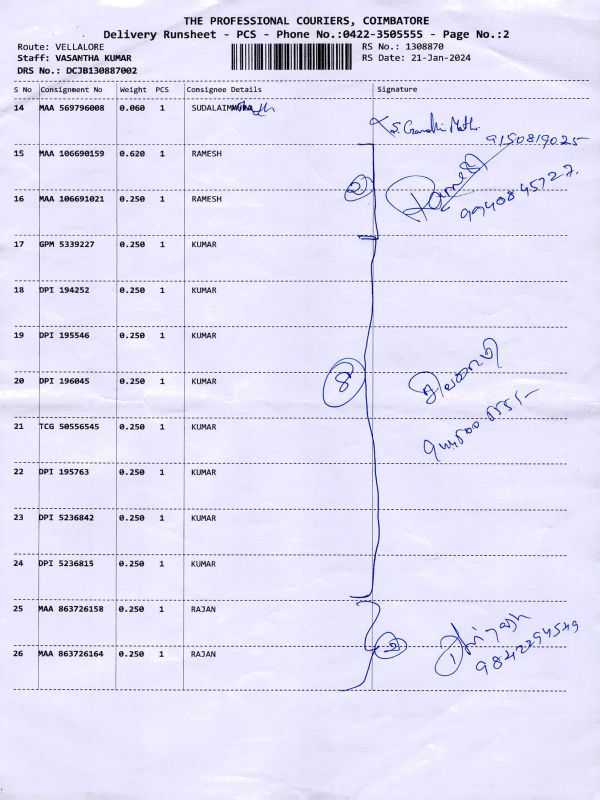 THE PROFESSIONAL COURIERS, COIMBATORE
Delivery Runsheet - PCS - Phone No.:0422-3505555 - Page No.:2
Route: VELLALORE RS No.: 1308870
Staff: VASANTHA KUMAR RS Date: 21-Jan-2024
DRS No.: DCJB130887002
S No Consignment No Weight PCS Consignee Details Signature
14 MAA 569796008 0.060 1 SUDALAIMUTHU
9150819025
15 MAA 106690159 0.620 1 RAMESH
2 Ramesh
9940845727.
16 MAA 106691021 0.250 1 RAMESH
17 GPM 5339227 0.250 1 KUMAR
18 DPI 194252 0.250 1 KUMAR
19 DPI 195546 0.250 1 KUMAR
20 DPI 196045 0.250 1 KUMAR
8
21 TCG 50556545 0.250 1 KUMAR
22 DPI 195763 0.250 1 KUMAR
23 DPI 5236842 0.250 1 KUMAR
24 DPI 5236815 0.250 1 KUMAR
25 MAA 863726158 0.250 1 RAJAN
26 MAA 863726164 0.250 1 RAJAN
2
9842294549